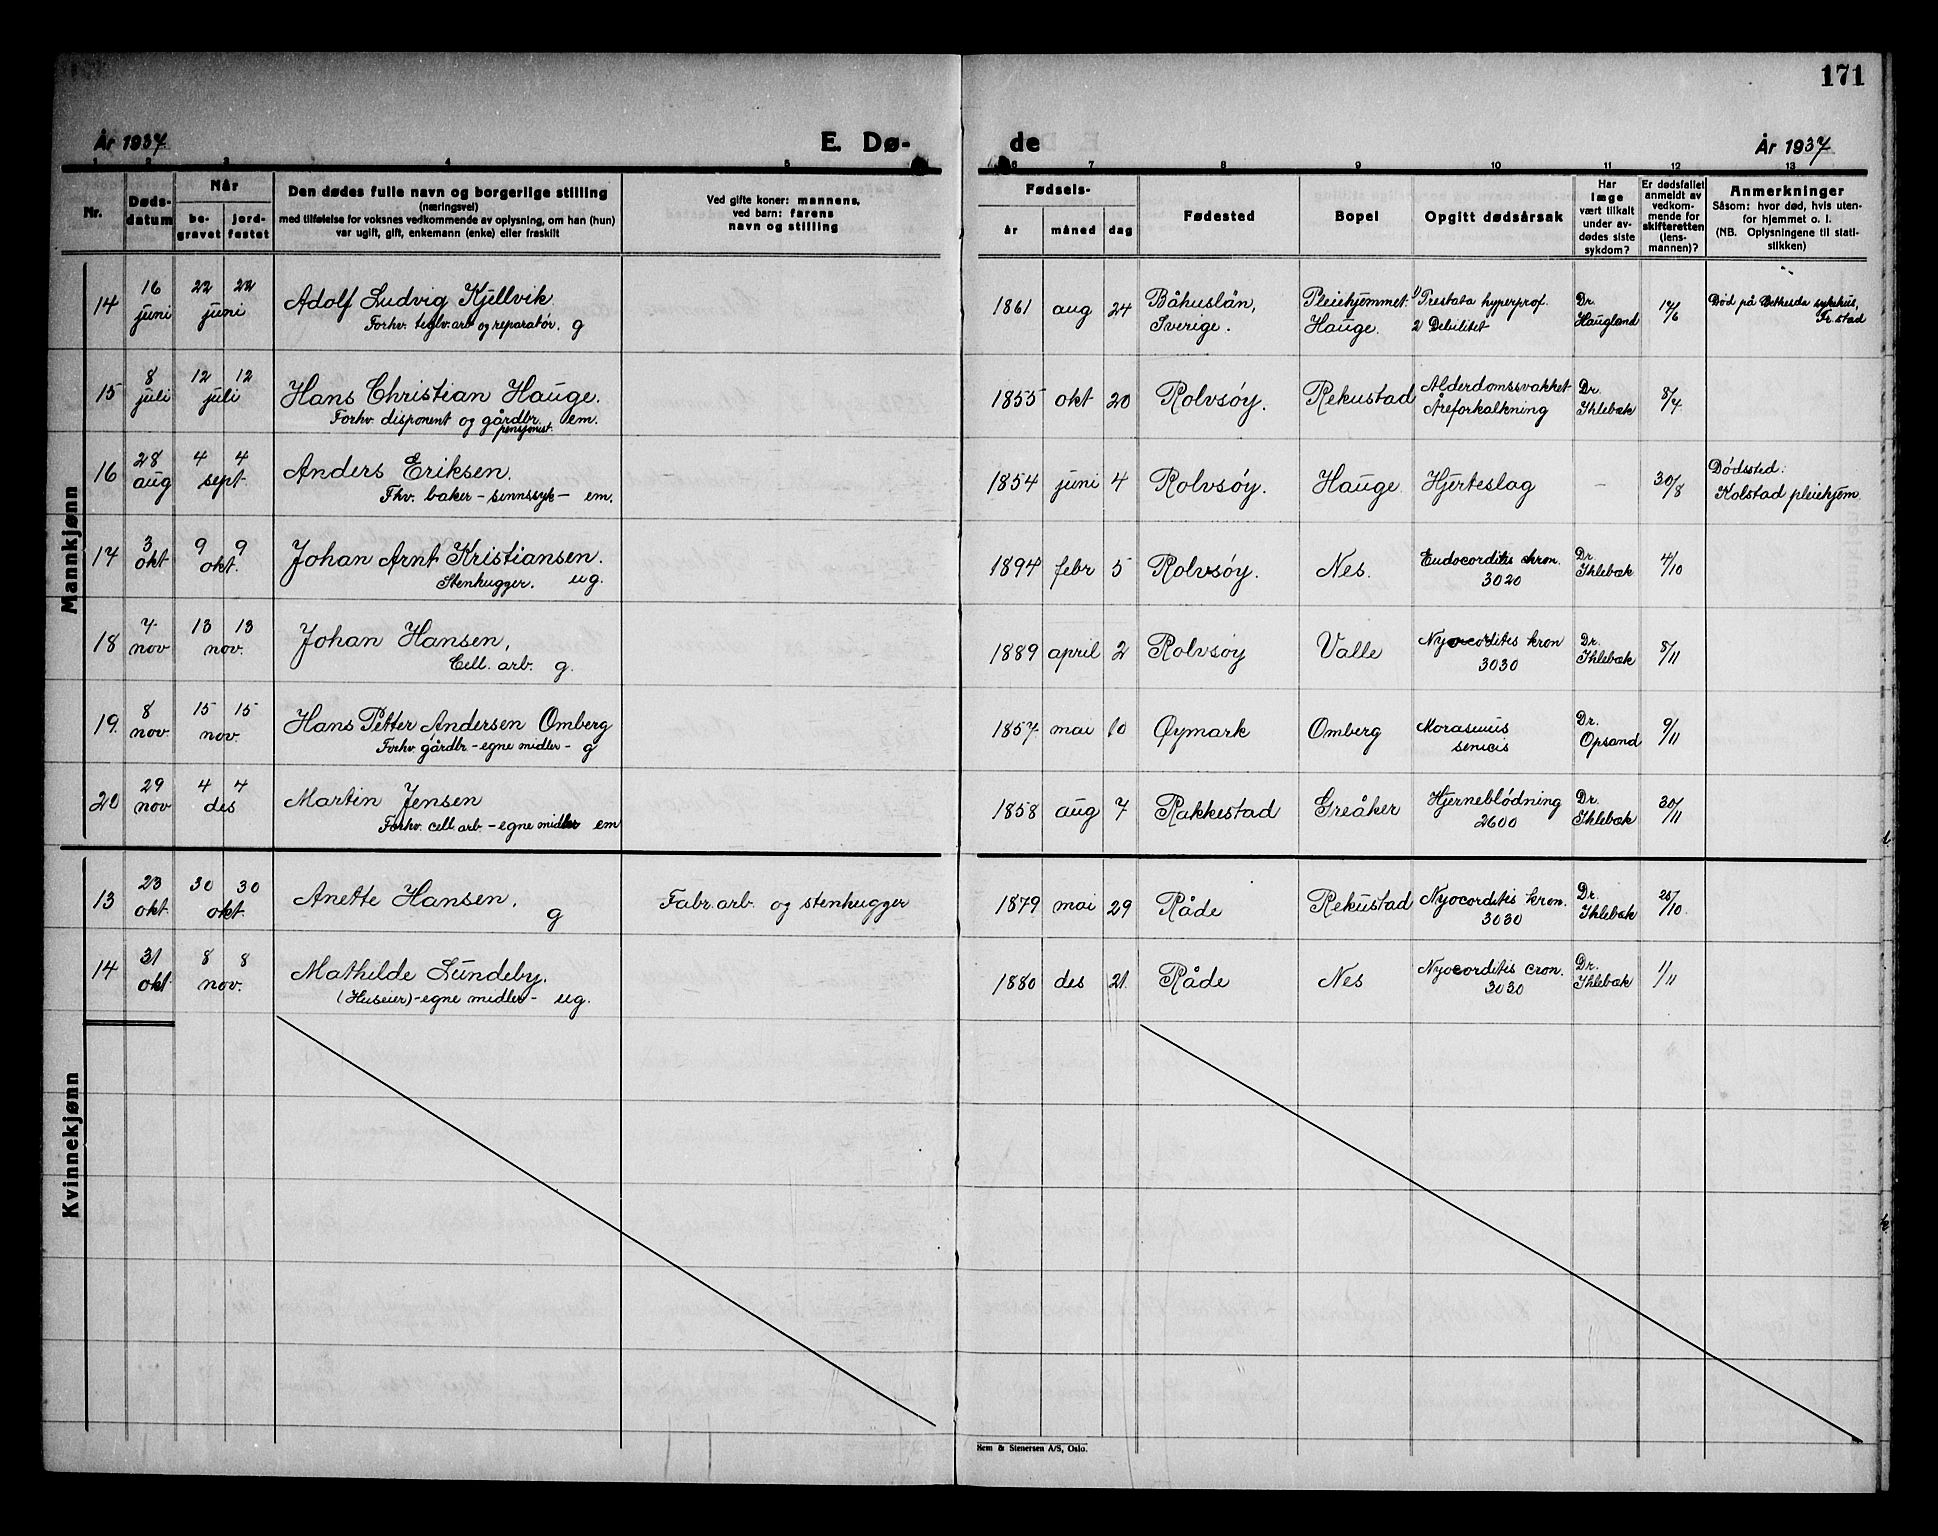 171
År 1937
E. Dø-
de
År 1937
1 2 3 4 5
6 7 8 9 10 11 12 13
Nr.
Døds-
datum
Når
be-
gravet
jord-
festet
Den dødes fulle navn og borgerlige stilling
(næringsvei)
med tilføielse for voksnes vedkommende av oplysning, om han (hun)
var ugift, gift, enkemann (enke) eller fraskilt
Ved gifte koner: mannens,
ved barn: farens
navn og stilling
Fødsels-
år måned dag
Fødested
Bopel
Opgitt dødsårsak
Har
læge
vært tilkalt
under av-
dødes siste
sykdom?
Er dødsfallet
anmeldt av
vedkom-
mende for
skifteretten
(lens-
mannen)?
Anmerkninger
Såsom: hvor død, hvis uten-
for hjemmet o. l.
(NB. Oplysningene til stati-
stikken)
Mannkjønn
14 16 juni 22 22 juni Adolf Ludvig Kjellvik
Forhv. teglv.arb og reparatør. g
1861 aug 24 Båhuslän, Sverige. Pleiehjemmet Hauge. 1) Prestata hyperprof. 2 Debilitet Dr. Haugland 17/6 Død på Bethesda sykehus, Fr.stad
15 8 juli 12 12 juli Hans Christian Hauge.
Forhv. disponent og gårdbr. em.
pensjonist.
1855 okt 20 Rolvsøy. Rekustad Alderdomssvakket Åreforkalkning Dr Ihlebæk 8/7
16 28 aug 4 4 sept. Anders Eriksen.
Fhv. baker - sinnssyk - em.
1854 juni 4 Rolvsøy. Hauge Hjerteslag - 30/8 Dødssted: Kolstad pleiehjem.
17 3 okt 9 9 okt. Johan Arnt Kristiansen.
Stenhugger. ug.
1894 febr 5 Rolvsøy. Nes. Endocorditis kron. 3020 Dr. Ihlebæk 4/10
18 7 nov 13 13 nov. Johan Hansen,
Cell. arb. g.
1889 april 2 Rolvsøy Valle Myocorditis kron 3030 Dr. Ihlebæk 8/11
19. 8 nov. 15 15 nov. Hans Petter Andersen Omberg
Forhv. gårdbr - egne midler - g
1857 mai 10 Øymark Omberg Morasmus senicis Dr. Opsand 9/11
20 29 nov 4 4 des Martin Jensen
Forhv. cell arb. - egne midler em
1858 aug 7 Rakkestad Greåker Hjerneblödning 2600 Dr. Ihlebæk 30/11
Kvinnekjønn
13 23 okt. 30 30 okt. Anette Hansen, g
Fabr.arb. og stenhugger
1879 mai 29 Råde Rekustad Myocorditis kron. 3030 Dr. Ihlebæk 25/10.
14 31 okt. 8 8 nov. Mathilde Lundeby.
(Huseier) - egne midler - ug.
1880 des 21. Råde Nes Myocorditis cron. 3030 Dr. Ihlebæk 1/11
Rem & Stenersen A/S, Oslo.